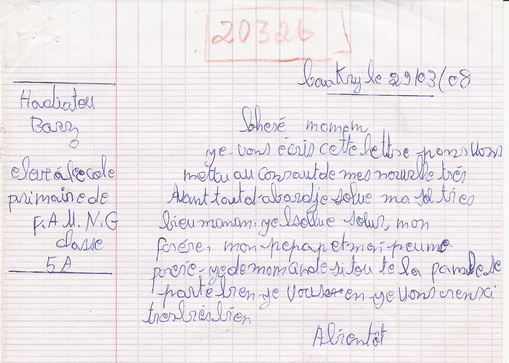 20326
Conakry le 29/03/08
Hadiatou
Barry
eleve à l'ecole
primaire de
F.A.M.N.G
classe
5A
cheré momam
ye vous écris cette lettre pour vous
mettu au consaut de mes nouvelle trés
Avant tout d'abord je solue ma
bieu momam. ye solue soeur, mon
forére, mon papa et moi
ye demomande si tou te la
parte bien ye vous en ye vous
tres trés bien
Abientôt